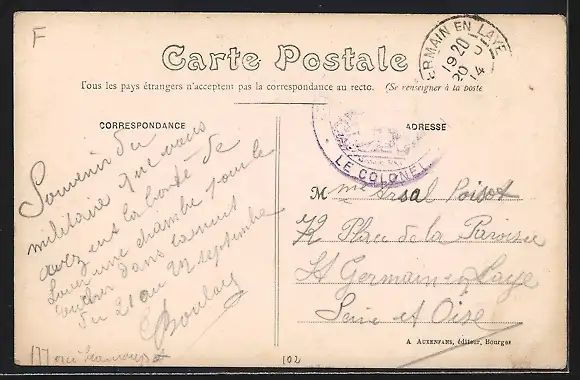 F
Carte Postale
Tous les pays étrangers n'acceptent pas la correspondance au recto. (Se renseigner à la poste
RMAIN EN LAYE
19 20
20 14
CORRESPONDANCE
ADRESSE
LE COLONEL
Souvenir du
militaire que vous
avez eut la bonté de
Louer une chambre pour le
dans la nuit
du 21 au 22 septembre
M me Arsal Poisot
72 Place de la Paroisse
St Germain en Laye
Seine et Oise
A AUXENFANS, éditeur, Bourges
Merci beaucoup
102